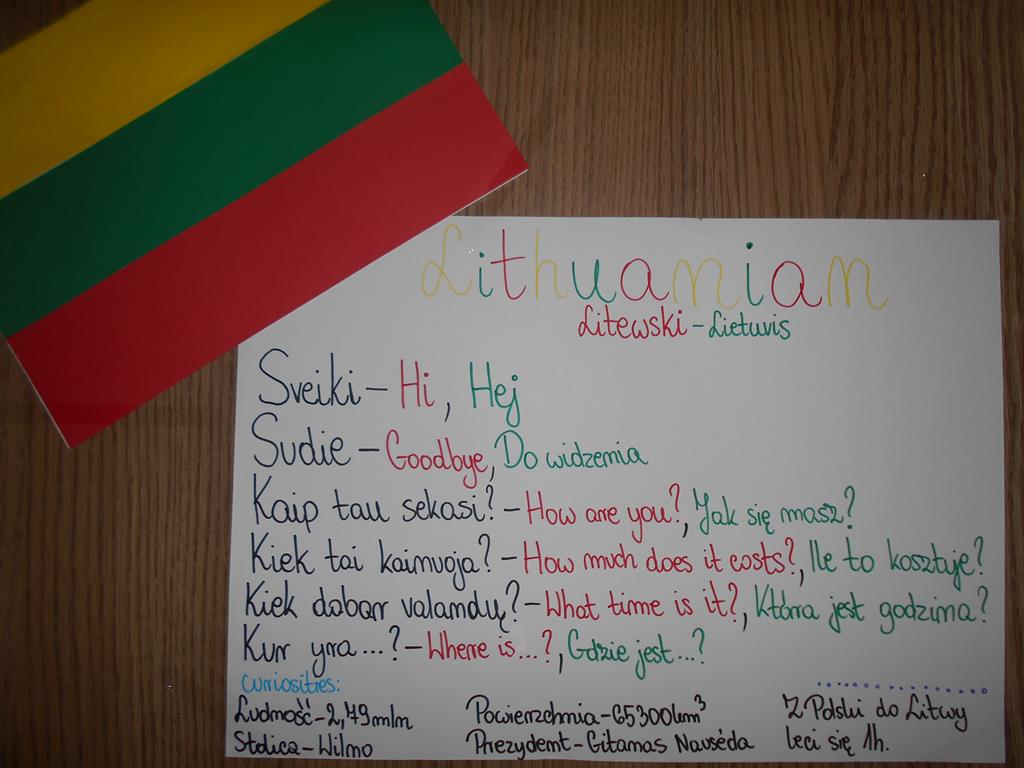 Lithuanian
Litewski - Lietuvis
Sveiki - Hi, Hej
Sudie - Goodbye, Do widzenia
Kaip tau sekasi? - How are you?, Jak się masz?
Kiek tai kainuoja? - How much does it costs?, Ile to kosztuje?
Kiek dabar valandų? - What time is it?, Która jest godzina?
Kur yra...? - Where is...?, Gdzie jest...?
curiositres:
Ludność - 2,79mln Powierzchnia - 65300km³ Z Polski do Litwy
Stolica - Wilno Prezydent - Gitanas Nauséda leci się 1h.